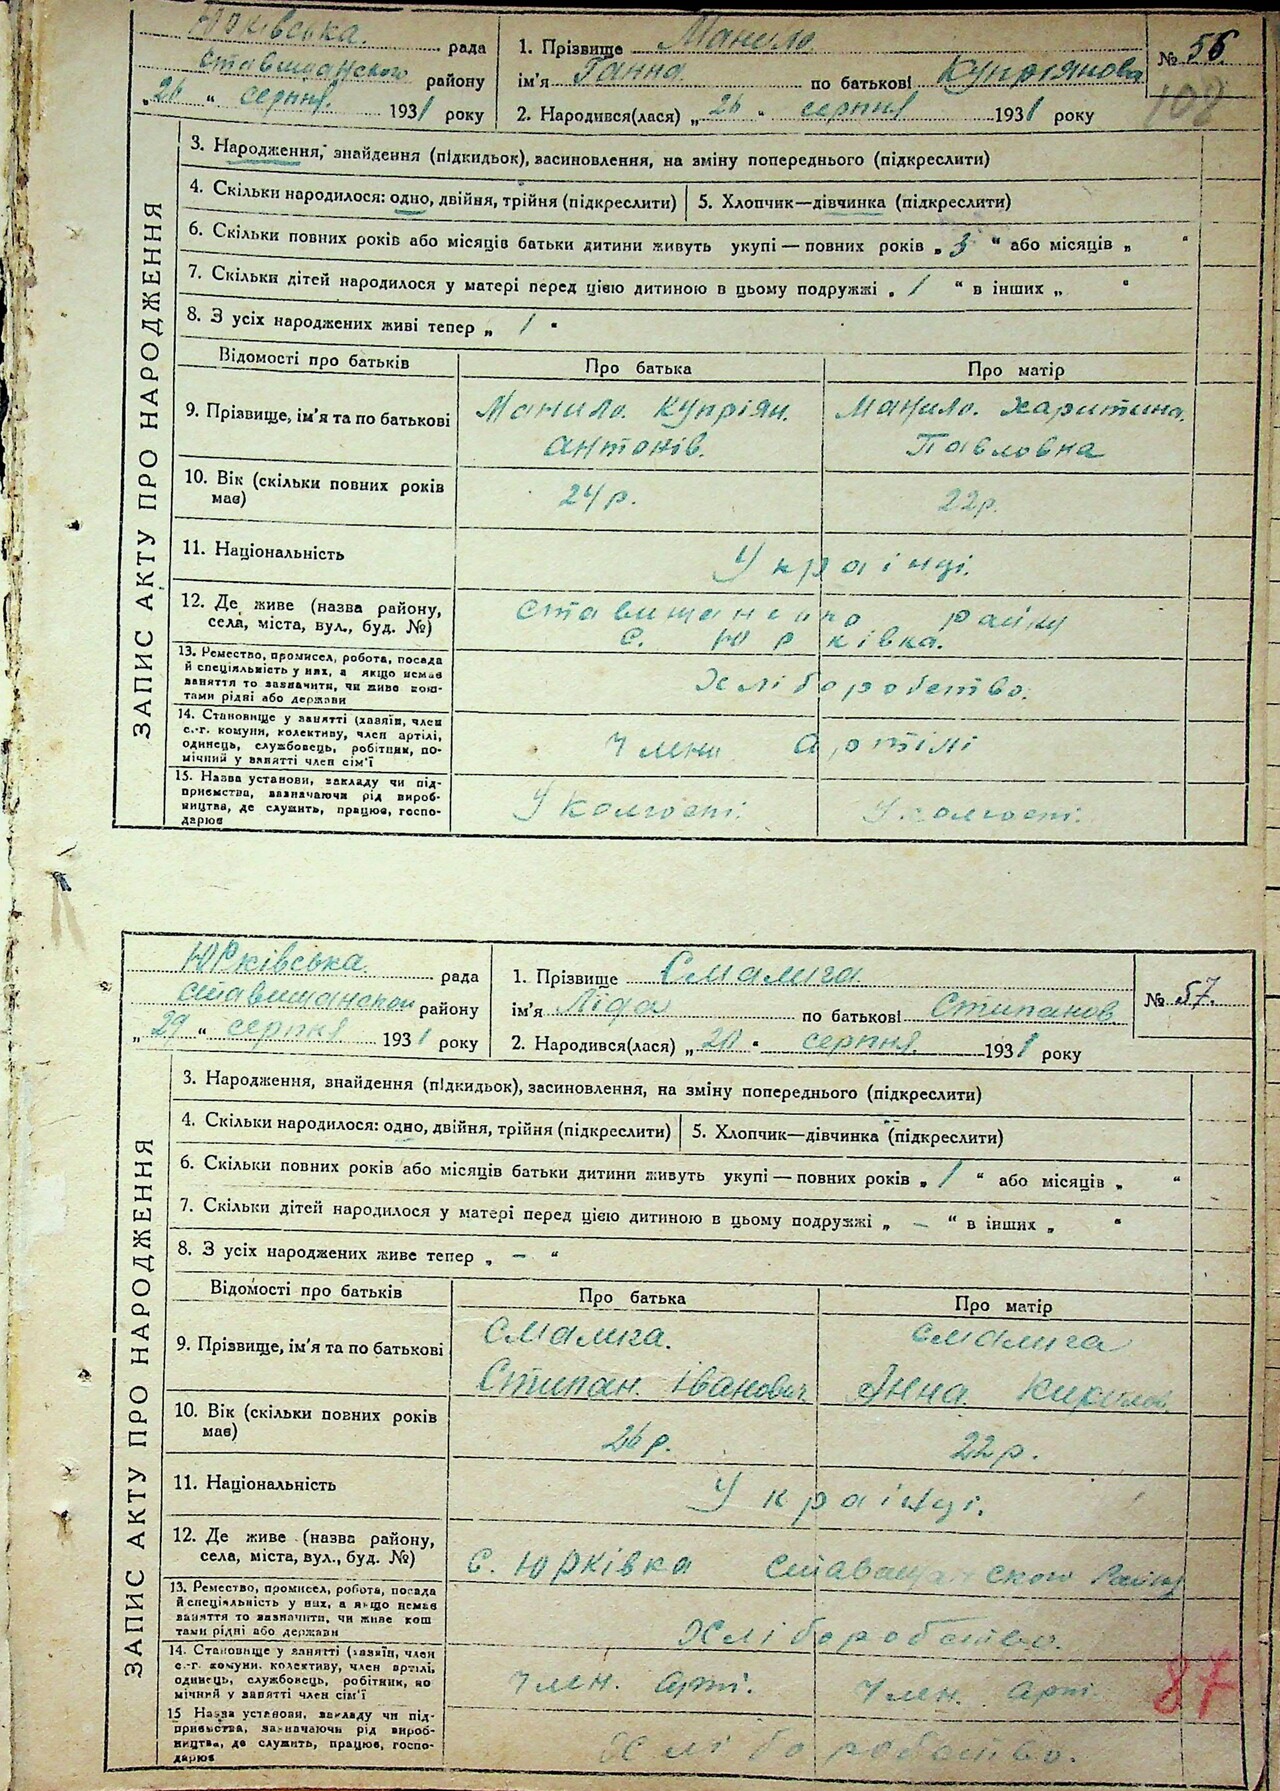 Юрківська рада
Ставищанского району
„26“ серпня 1931 року
1. Прізвище Манило
ім'я Ганна по батькові Купріянова
2. Народився(лася) „26“ серпня 1931 року
№ 56.
102
ЗАПИС АКТУ ПРО НАРОДЖЕННЯ
3. Народження, знайдення (підкидьок), засиновлення, на зміну попереднього (підкреслити)
4. Скільки народилося: одно, двійня, трійня (підкреслити) 5. Хлопчик—дівчинка (підкреслити)
6. Скільки повних років або місяців батьки дитини живуть укупі — повних років „3“ або місяців „ “
7. Скільки дітей народилося у матері перед цією дитиною в цьому подружжі „1“ в інших „ “
8. З усіх народжених живі тепер „1“
Відомості про батьків Про батька Про матір
9. Прізвище, ім'я та по батькові
Манило. Купріян. Антонів.
Манило. Харитина. Павловна
10. Вік (скільки повних років має) 24 р. 22 р.
11. Національність Українці.
12. Де живе (назва району, села, міста, вул., буд. №)
Ставищанского району
с. Юрківка.
13. Ремество, промисел, робота, посада й спеціяльність у них, а якщо немає заняття то зазначити, чи живе коштами рідні або держави
Хліборобство.
14. Становище у занятті (хазяїн, член с.-г. комуни, колективу, член артілі, одинець, службовець, робітник, помічний у занятті член сім'ї
Члени артілі
15. Назва установи, закладу чи підприємства, зазначаючи рід виробництва, де служить, працює, господарює
У колгоспі. У колгоспі.
Юрківська рада
Ставищанском району
„29“ серпня 1931 року
1. Прізвище Смалига
ім'я Ліда по батькові Стипанов
2. Народився(лася) „20“ серпня 1931 року
№ 57.
ЗАПИС АКТУ ПРО НАРОДЖЕННЯ
3. Народження, знайдення (підкидьок), засиновлення, на зміну попереднього (підкреслити)
4. Скільки народилося: одно, двійня, трійня (підкреслити) 5. Хлопчик—дівчинка (підкреслити)
6. Скільки повних років або місяців батьки дитини живуть укупі — повних років „1“ або місяців „ “
7. Скільки дітей народилося у матері перед цією дитиною в цьому подружжі „—“ в інших „ “
8. З усіх народжених живе тепер „—“
Відомості про батьків Про батька Про матір
9. Прізвище, ім'я та по батькові
Смалига. Стипан. Іванович
Смалига Анна. Кирилов.
10. Вік (скільки повних років має) 26 р. 22 р.
11. Національність Українці.
12. Де живе (назва району, села, міста, вул., буд. №)
с. Юрківка Ставищанского району
13. Ремество, промисел, робота, посада й спеціяльність у них, а якщо немає заняття то зазначити, чи живе коштами рідні або держави
Хліборобство.
14. Становище у занятті (хазяїн, член с.-г. комуни, колективу, член артілі, одинець, службовець, робітник, помічний у занятті член сім'ї
Член. арті. Член. арті.
15 Назва установи, закладу чи підприємства, зазначаючи рід виробництва, де служить, працює, господарює
Хліборобство.
87